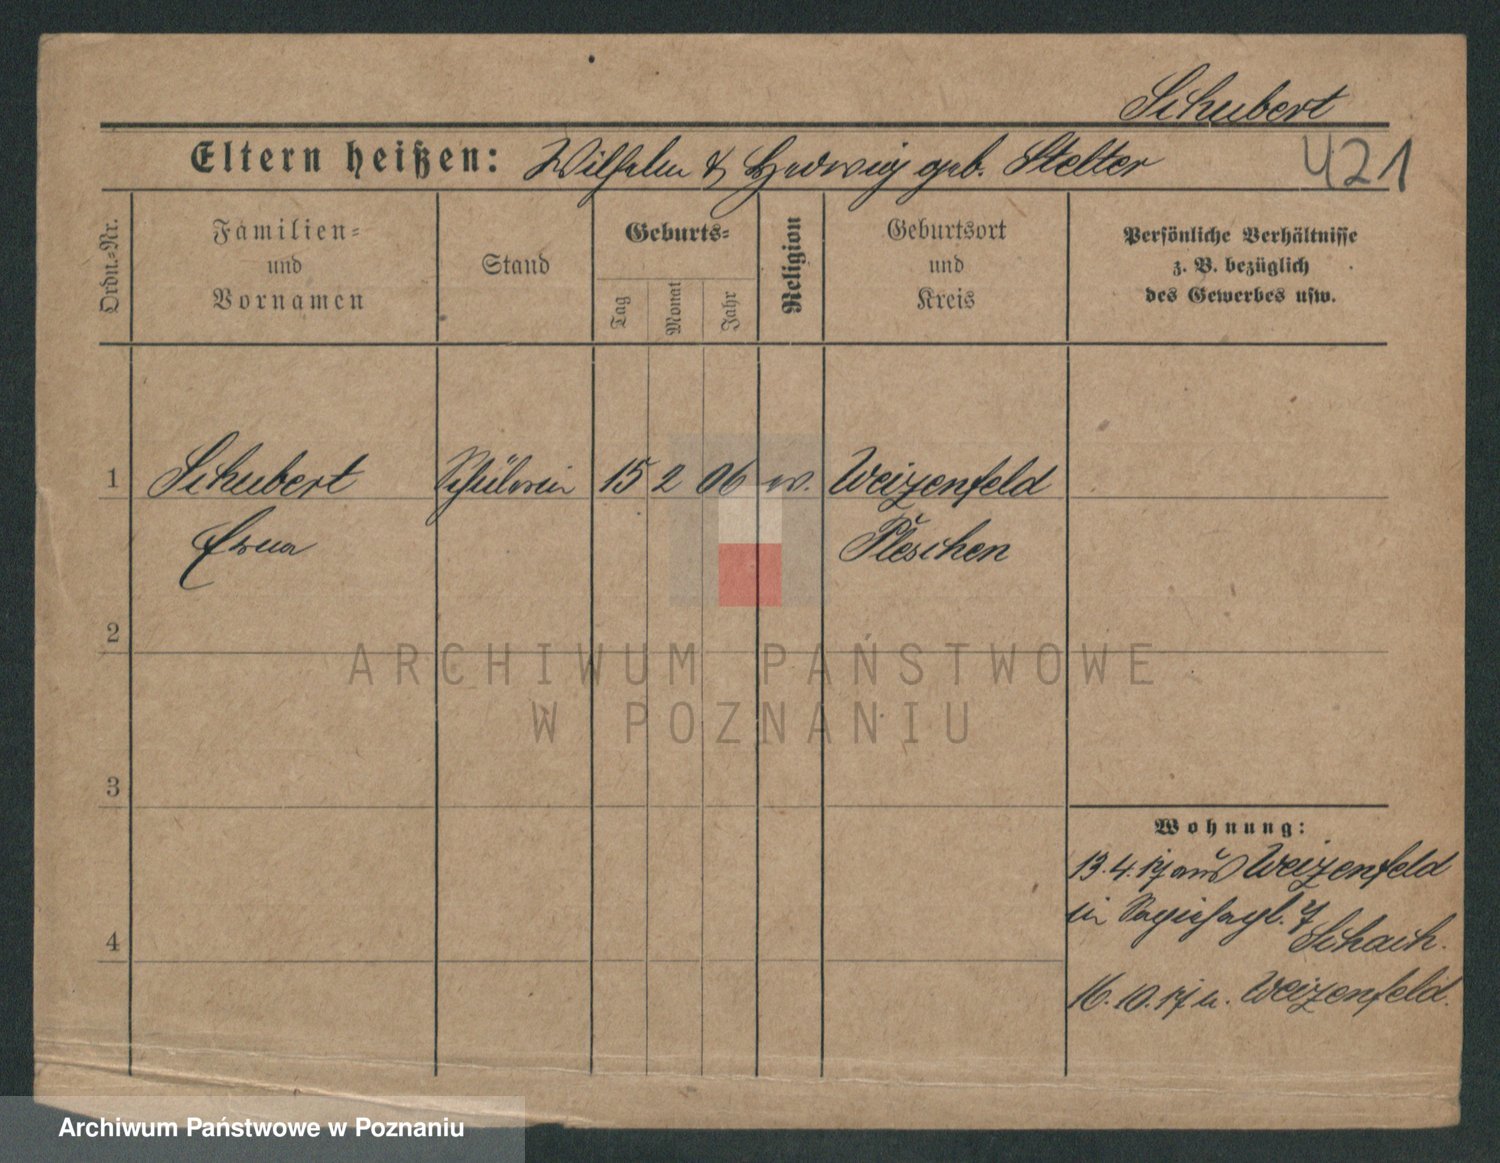 Schubert
Eltern heißen: Wilhelm & Hedwig geb. Stelter
421
Ordn.-Nr.
Familien-
und
Vornamen
Stand
Geburts-
Tag
Monat
Jahr
Religion
Geburtsort
und
Kreis
Persönliche Verhältnisse
z. B. bezüglich
des Gewerbes usw.
1
Schubert
Schülerin
15
2
06
ev.
Weizenfeld
Erna
Pleschen
2
ARCHIWUM PAŃSTWOWE
W POZNANIU
3
Wohnung:
13.4.17 aus Weizenfeld
in 7
Schach.
4
16.10.17 n. Weizenfeld.
Archiwum Państwowe w Poznaniu